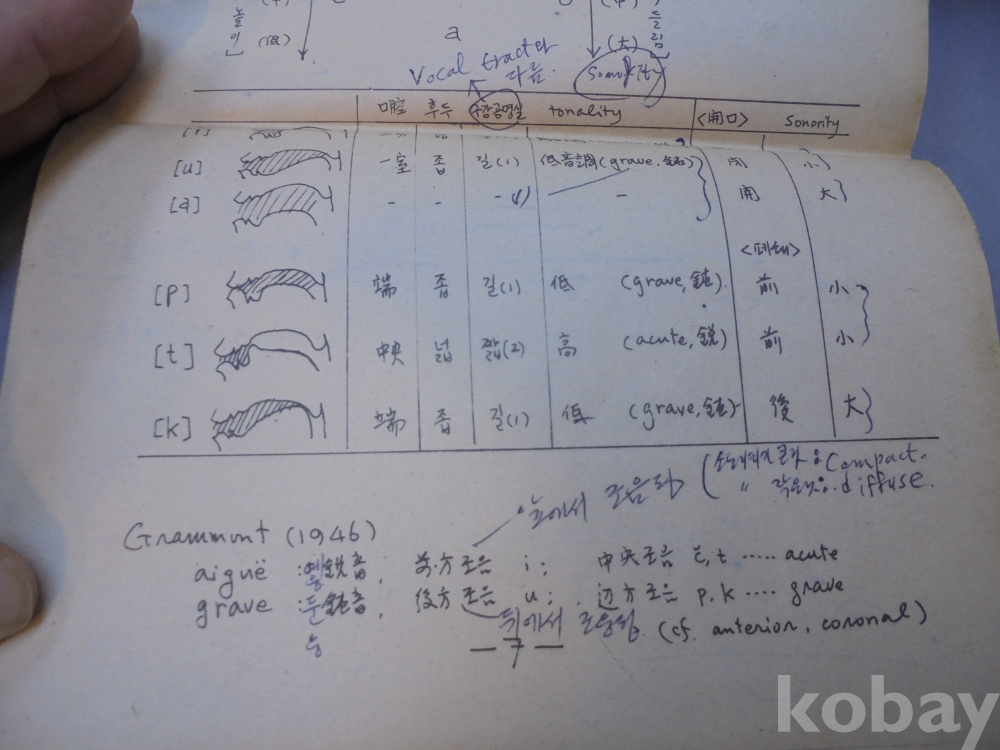 높이
(低)
a
(大)
울림
Vocal tract와
다름.
Sonority
口腔 후두 구강공명실 tonality <開口> Sonority
[u] 一室 좁 길(1) 低音調(grave, 鈍) 閉 小
[a] - - -(1) - 開 大
<폐쇄>
[p] 端 좁 길(1) 低 (grave, 鈍). 前 小
[t] 中央 넓 짧(2) 高 (acute, 銳) 前 小
[k] 端 좁 길(1) 低 (grave, 鈍) 後 大
앞에서 조음화 Compact.
〃 작은것은. diffuse.
Grammont (1946)
aiguë : 예 銳音, 前方조음 i; 中央조음 č, t ..... acute
grave : 둔 鈍音, 後方조음 u; 边方조음 p. k .... grave
뒤에서 조음화 (cf. anterior, coronal)
— 7 —
kobay